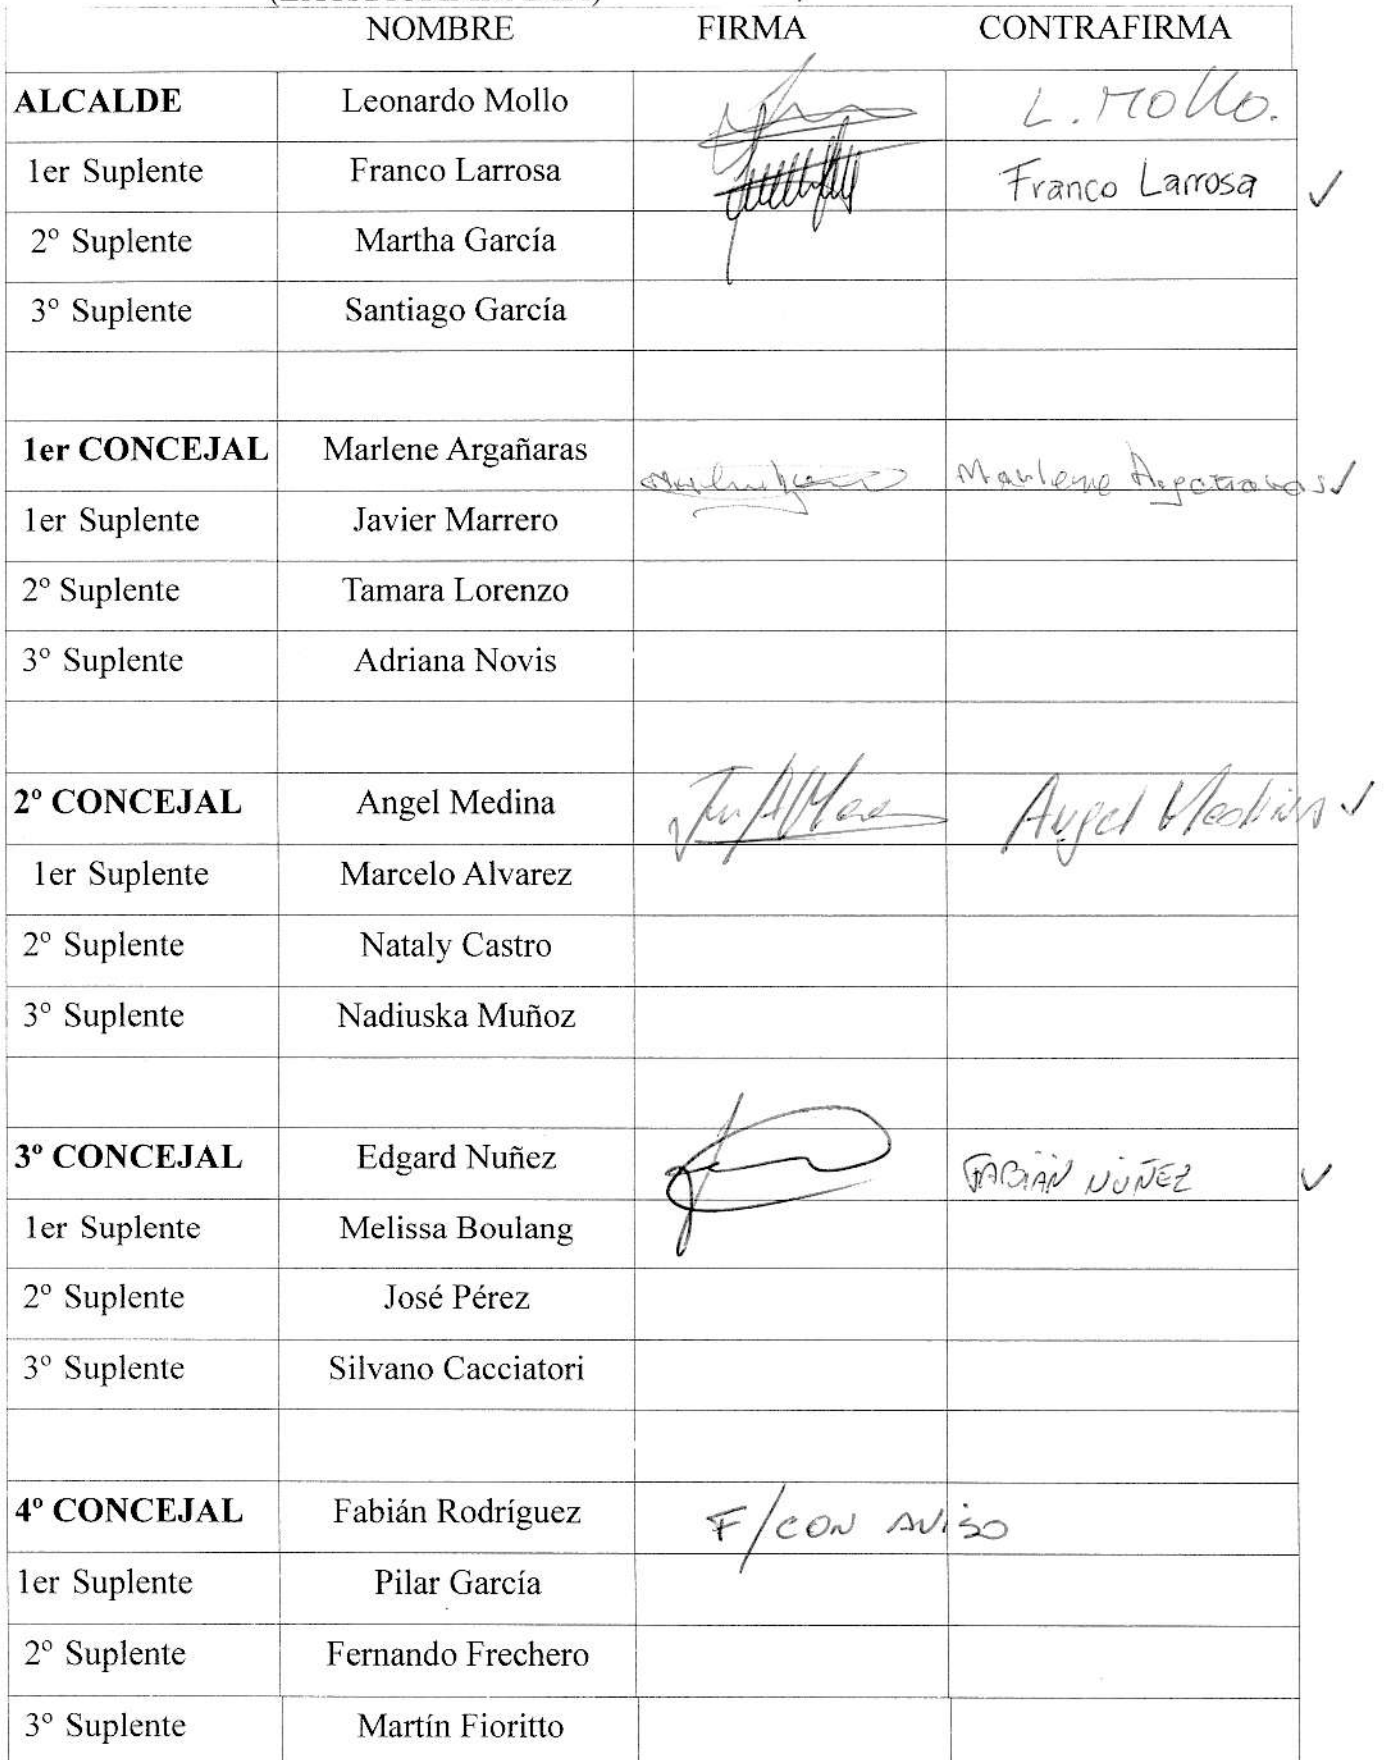 NOMBRE FIRMA CONTRAFIRMA
ALCALDE Leonardo Mollo L. Mollo.
1er Suplente Franco Larrosa Franco Larrosa ✓
2º Suplente Martha García
3º Suplente Santiago García
1er CONCEJAL Marlene Argañaras Marlene Argañaras ✓
1er Suplente Javier Marrero
2º Suplente Tamara Lorenzo
3º Suplente Adriana Novis
2º CONCEJAL Angel Medina Angel Medina ✓
1er Suplente Marcelo Alvarez
2º Suplente Nataly Castro
3º Suplente Nadiuska Muñoz
3º CONCEJAL Edgard Nuñez FABIÁN NÚÑEZ ✓
1er Suplente Melissa Boulang
2º Suplente José Pérez
3º Suplente Silvano Cacciatori
4º CONCEJAL Fabián Rodríguez F/CON AVISO
1er Suplente Pilar García
2º Suplente Fernando Frechero
3º Suplente Martín Fioritto